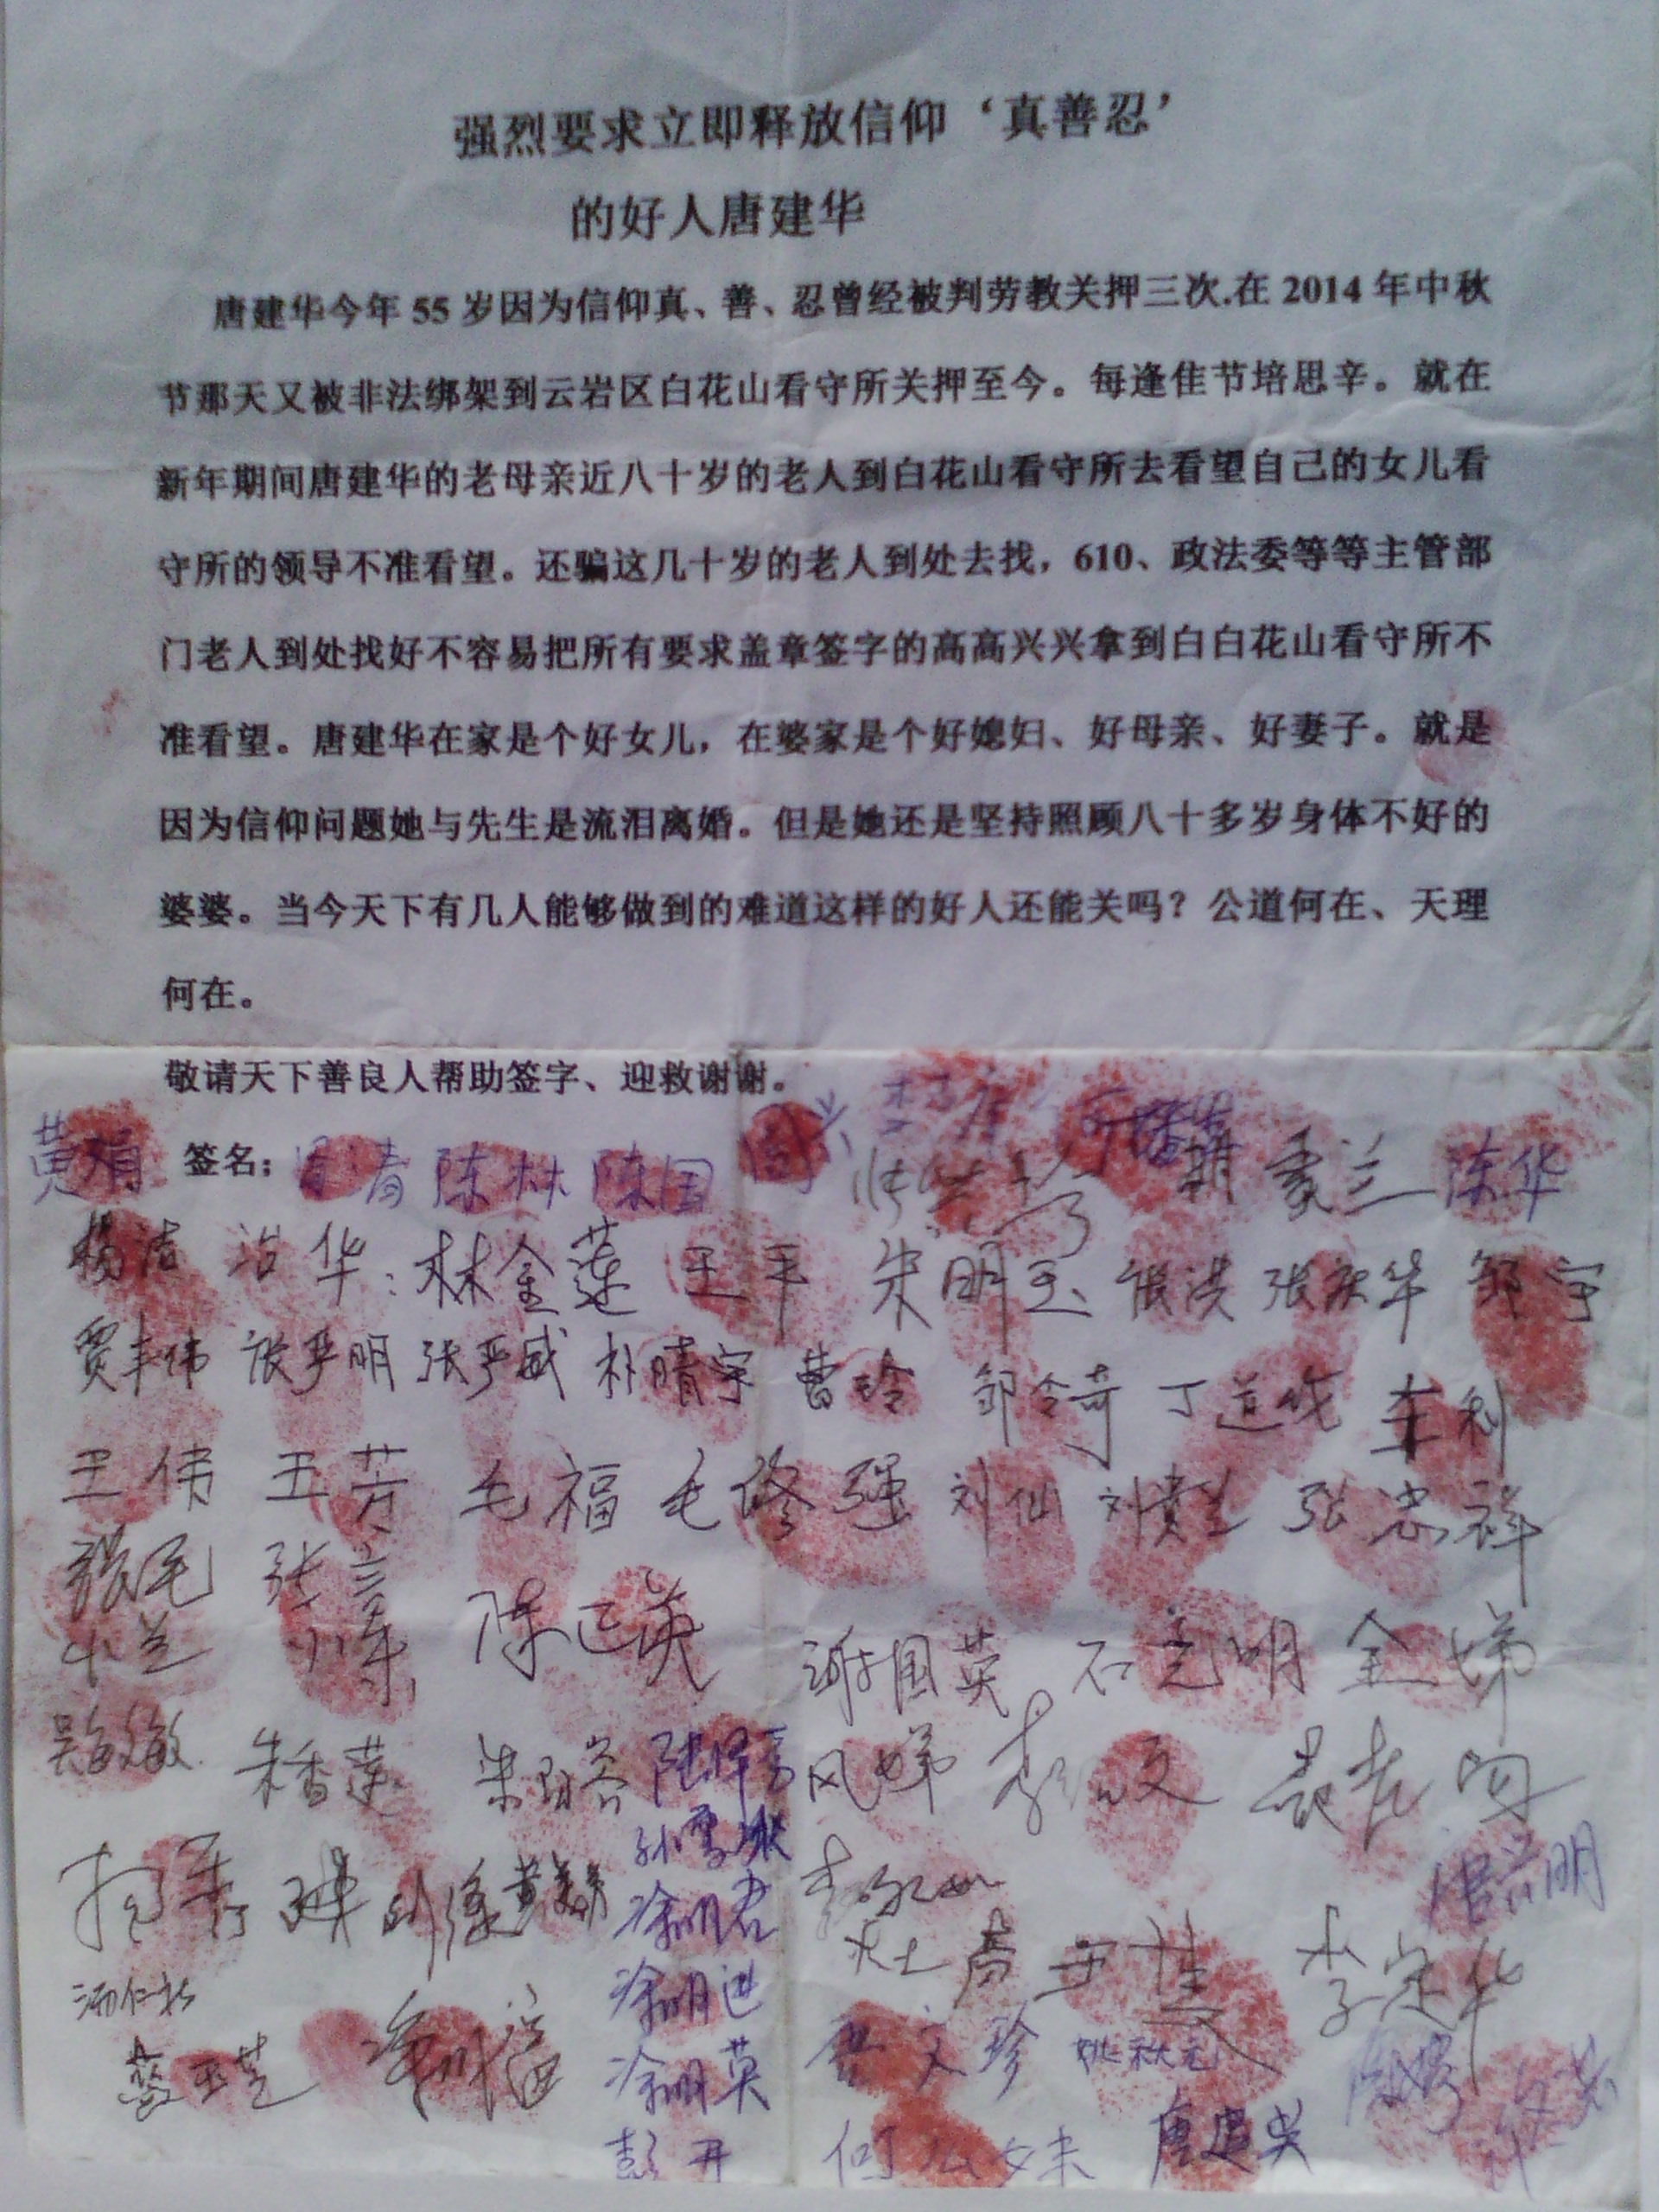 强烈要求立即释放信仰‘真善忍’
的好人唐建华
唐建华今年 55 岁因为信仰真、善、忍曾经被判劳教关押三次.在 2014 年中秋
节那天又被非法绑架到云岩区白花山看守所关押至今。每逢佳节培思辛。就在
新年期间唐建华的老母亲近八十岁的老人到白花山看守所去看望自己的女儿看
守所的领导不准看望。还骗这几十岁的老人到处去找，610、政法委等等主管部
门老人到处找好不容易把所有要求盖章签字的高高兴兴拿到白白花山看守所不
准看望。唐建华在家是个好女儿，在婆家是个好媳妇、好母亲、好妻子。就是
因为信仰问题她与先生是流泪离婚。但是她还是坚持照顾八十多岁身体不好的
婆婆。当今天下有几人能够做到的难道这样的好人还能关吗？公道何在、天理
何在。
敬请天下善良人帮助签字、迎救谢谢。
黄娟 签名； 陈林 陈国 陈华
杨洁 林金莲 王平 朱明玉 张洪 张庆华 邹宇
贾丰伟 张严明 张严威 朴晴宇 曹玲 邹令奇 丁道伐 李利
王伟 王芳 毛福 毛修强 刘仙 刘贵兰 张忠祥
张毛 张
小兰 小军 陈正英 谢国英 石光明 金娣
吴敏敏 朱香莲 风娣 袁老四
孙雪琳
涂明君 唐兴明
涂明进 李定华
蓝玉芝 涂明英 唐文珍 姚秋元
彭开 何么妹 唐建英